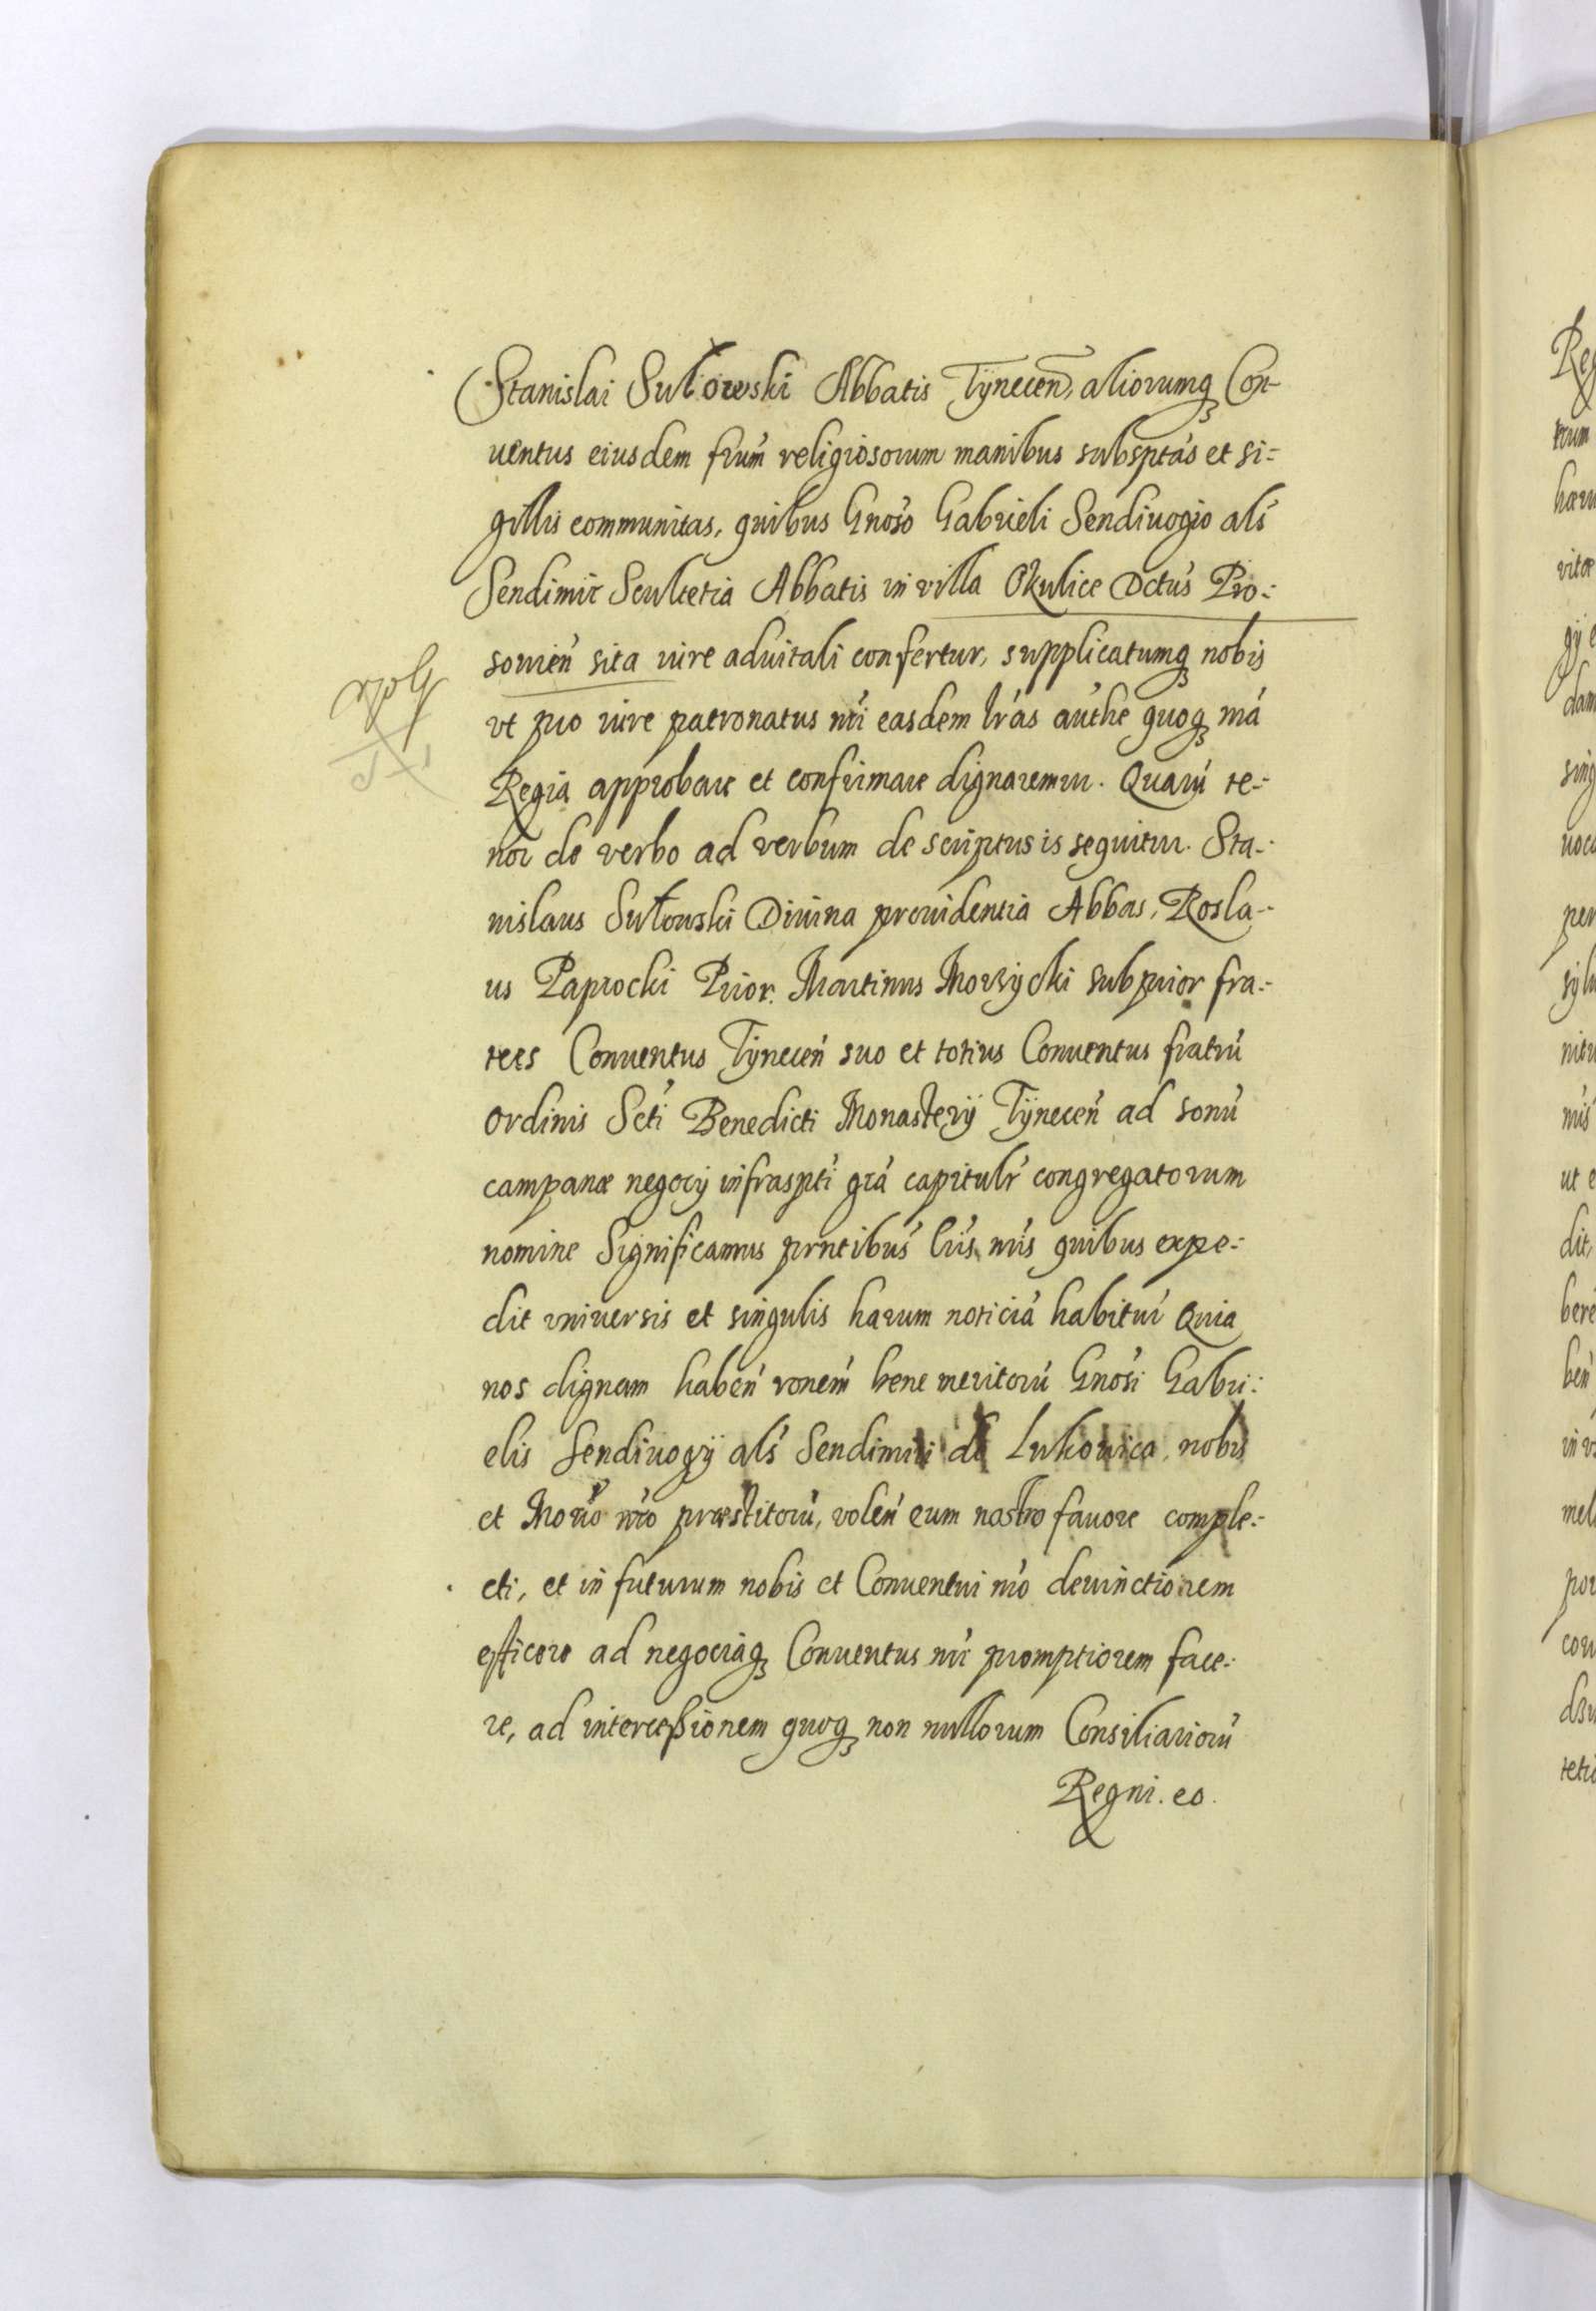 Stanislai Sułowski Abbatis Tÿnecen̄, aliorumq̢ Con-
uentus eiusdem frum̄ religiosorum manibus subsptas et si=
gillis communitas, quibus Gnoso Gabrieli Sendiuogio als
Sendimir Scultetia Abbatis in villa Okulice Dctus Pro=
souien̄ sita iure aduitali confertur, supplicatumq̢ nobis
vt pro iure patronatus nri easdem lras authe quoq̢ nrā
Regia approbare et confirmare dignaremur. Quarū te=
nor de verbo ad verbum descriptus is sequitur. Sta=
nislaus Sułowski Diuina prouidentia Abbas, Rosla=
us Paprocki Prior. Martinus subprior fra=
tres Conuentus Tÿnecen̄ suo et totius Conuentus fratrū
ordinis Scti Benedicti Monasterÿ Tÿnecen̄ ad sonū
campanæ negocÿ infraspti grā capitulr congregatorum
nomine Significamus prntibus lris nris quibus expe=
dit vniuersis et singulis harum noticiā habitur Quia
nos dignam haben̄ ronem̄ bene meritorū Gnosi Gabri=
elis Sendiuogÿ als Sendimiri de Lukowica, nobis
et Monrio nro præstitorū, volen̄ eum nostro fauore comple=
cti, et in futurum nobis et Conuentui nro deuinctiorem
efficere ad negociaq̢ Conuentus nri promptiorem face=
re, ad intercessionem quoq̢ non nullorum Consiliariorū
Regni. eo.